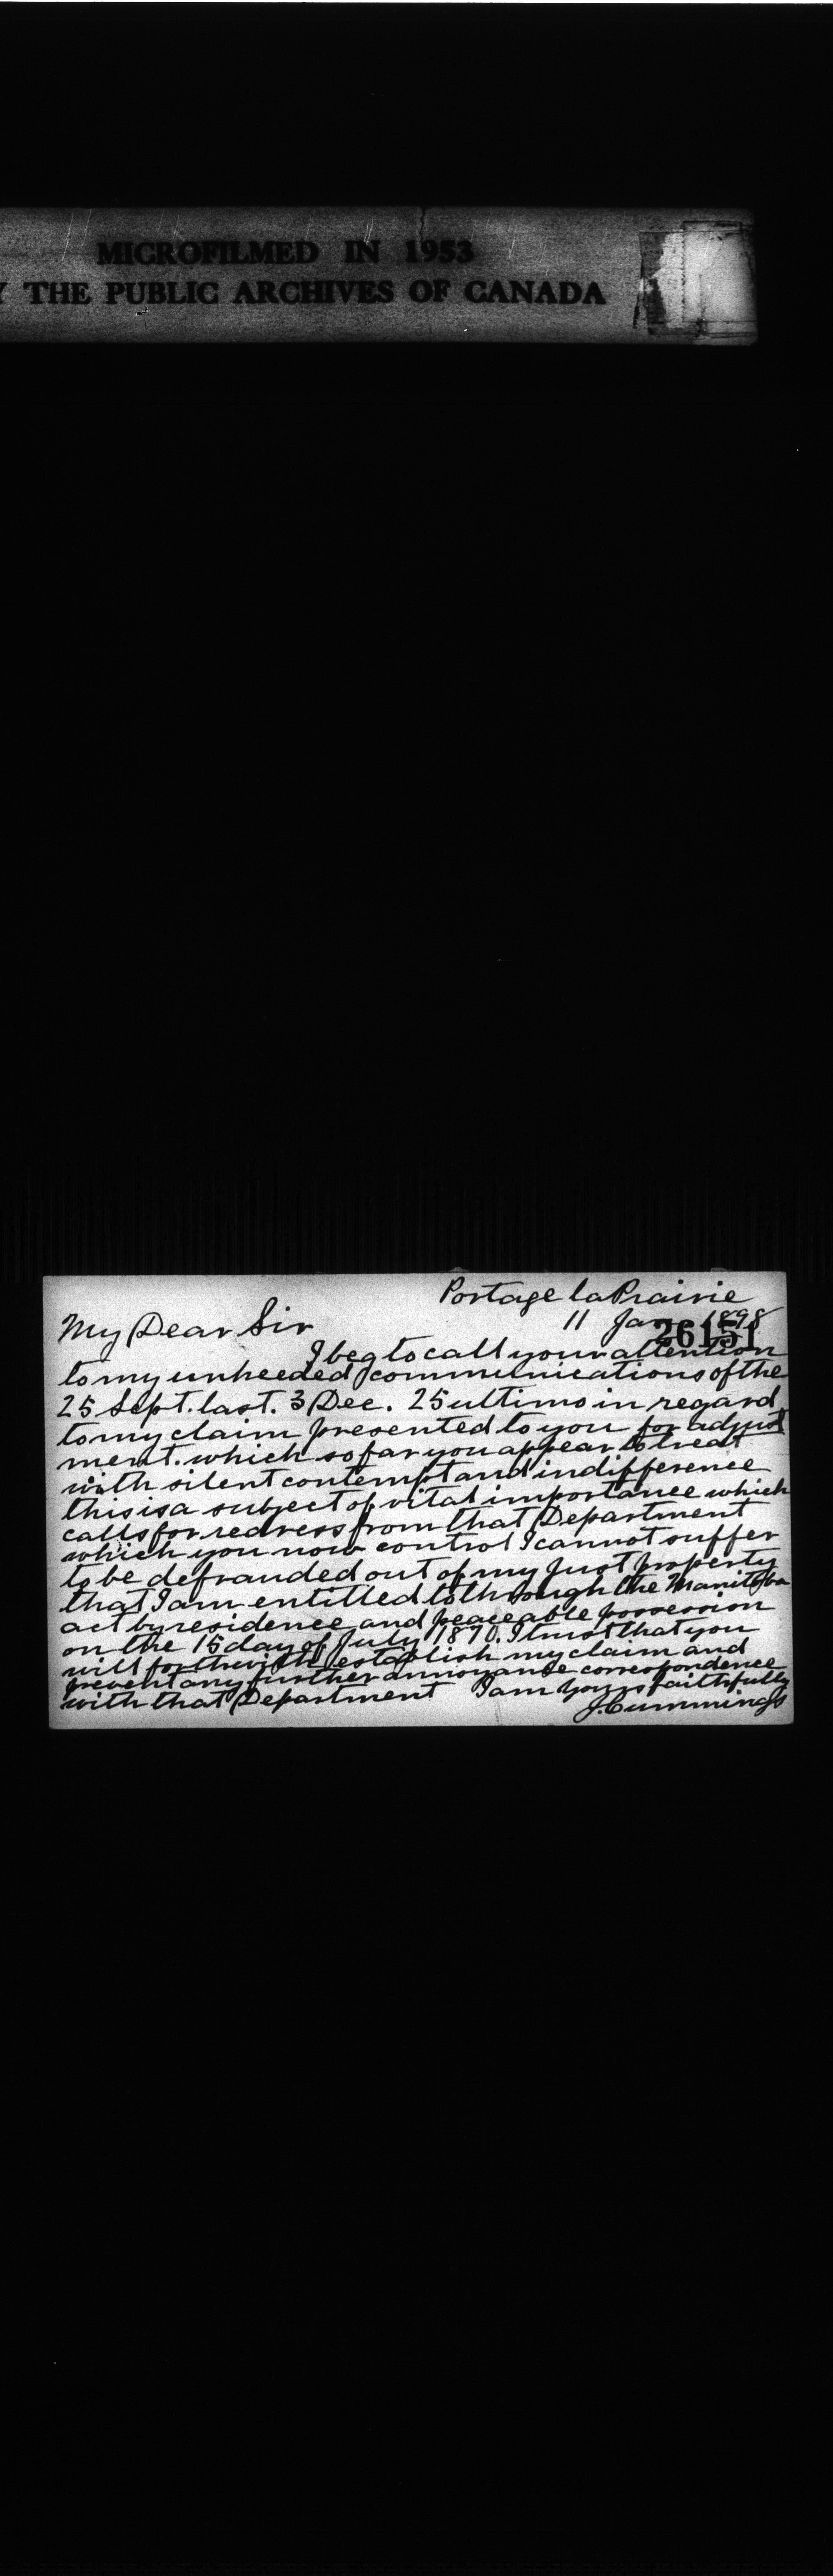 MICROFILMED IN 1953
Y THE PUBLIC ARCHIVES OF CANADA
Portage la Prairie
11 Jan 1898
26151
My Dear Sir
I beg to call your attention
to my unheeded communications of the
25 Sept. last. 3 Dec. 25 ultimo in regard
to my claim presented to you for adjust
ment. which so far you appear to treat
with silent contempt and indifference
this is a subject of vital importance which
calls for redress from that Department
which you now control I cannot suffer
to be defrauded out of my just property
that I am entitled to through the Manitoba
act by residence and peaceable possession
on the 15 day of July 1870. I trust that you
will forthwith establish my claim and
prevent any further annoyance correspondence
with that Department I am Yours faithfully
J. Cummings